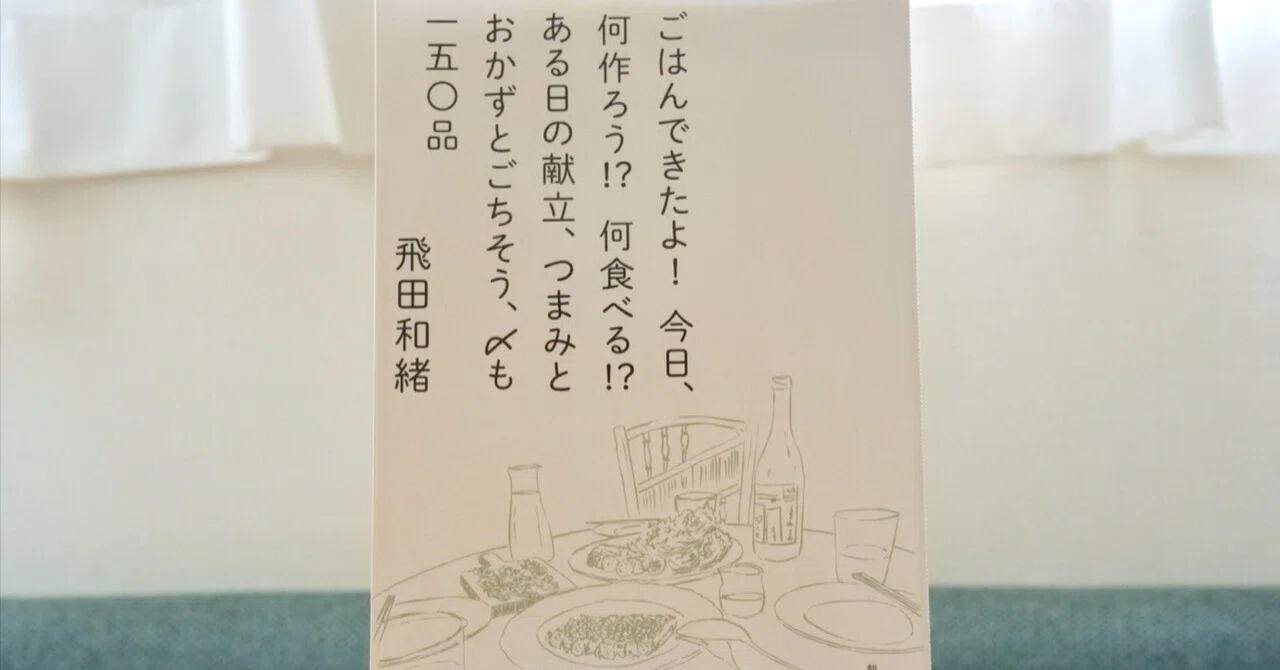 ごはんできたよ！ 今日、
何作ろう!? 何食べる!?
ある日の献立、つまみと
おかずとごちそう、〆も
一五〇品
飛田和緒